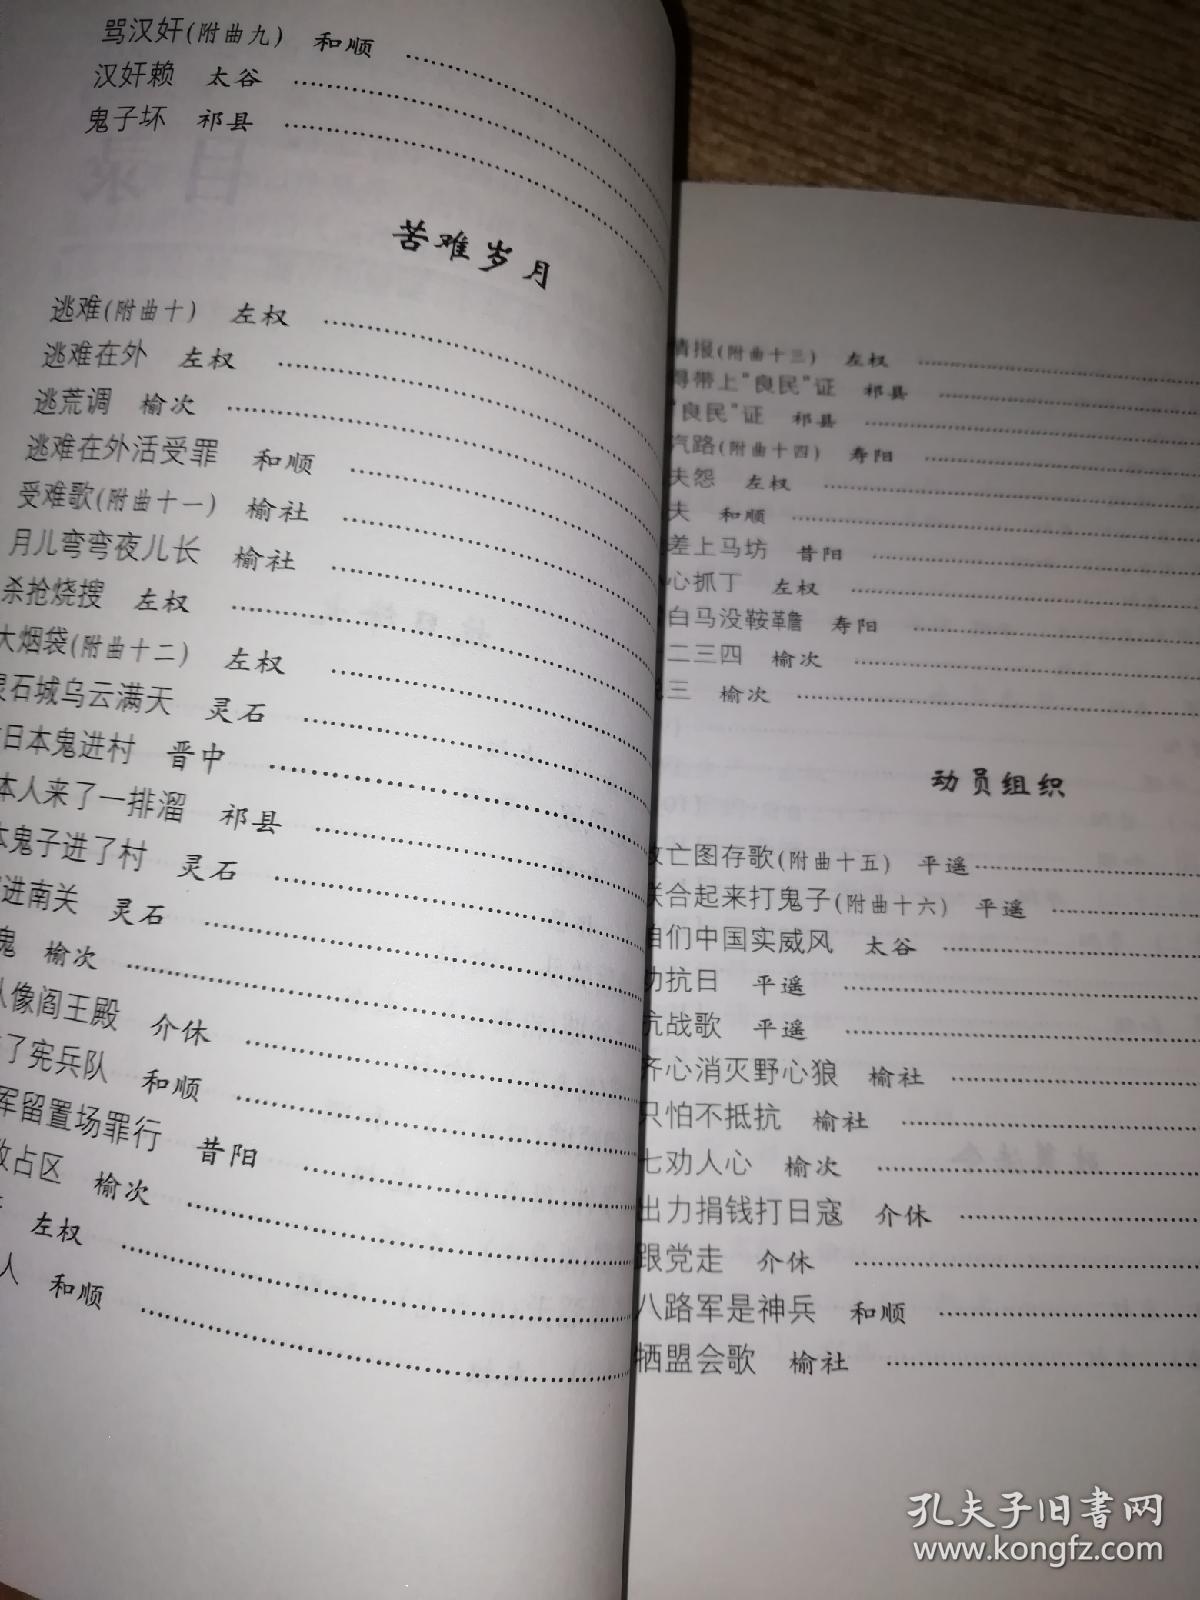 骂汉奸(附曲九) 和顺
汉奸赖 太谷
鬼子坏 祁县
目录
苦难岁月
逃难(附曲十) 左权
逃难在外 左权
逃荒调 榆次
逃难在外活受罪 和顺
受难歌(附曲十一) 榆社
月儿弯弯夜儿长 榆社
杀抢烧搜 左权
大烟袋(附曲十二) 左权
石城乌云满天 灵石
日本鬼进村 晋中
本人来了一排溜 祁县
鬼子进了村 灵石
进南关 灵石
鬼 榆次
像阎王殿 介休
了宪兵队 和顺
军留置场罪行 昔阳
占区 榆次
左权
人 和顺
情报(附曲十三) 左权
带上"良民"证 祁县
"良民"证 祁县
汽路(附曲十四) 寿阳
夫怨 左权
夫 和顺
差上马坊 昔阳
心抓丁 左权
白马没鞍鞯 寿阳
二三四 榆次
三 榆次
动员组织
救亡图存歌(附曲十五) 平遥
联合起来打鬼子(附曲十六) 平遥
咱们中国实威风 太谷
劝抗日 平遥
抗战歌 平遥
齐心消灭野心狼 榆社
只怕不抵抗 榆社
七劝人心 榆次
出力捐钱打日寇 介休
跟党走 介休
八路军是神兵 和顺
牺盟会歌 榆社
孔夫子旧书网
www.kongfz.com